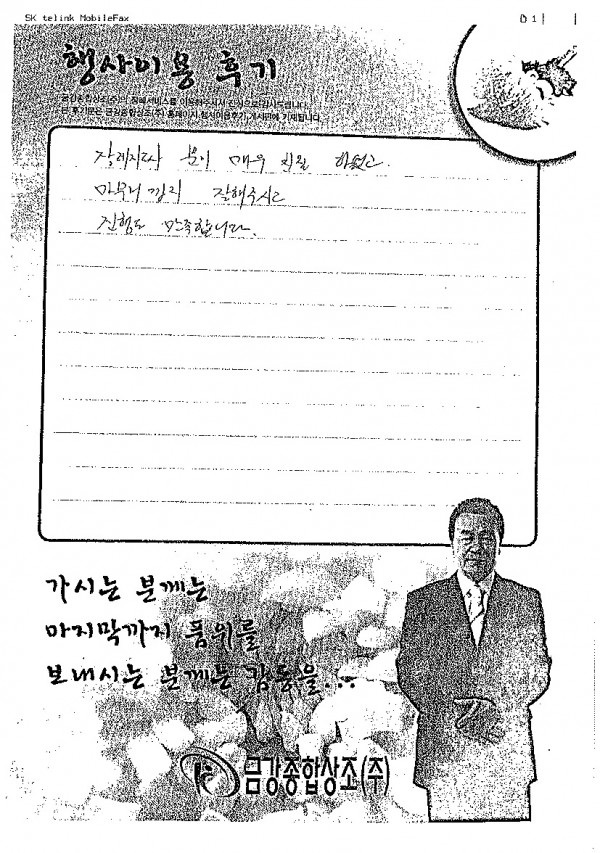 SK telink MobileFax 01
행사이용 후기
금강종합상조(주)의 장례서비스를 이용해주셔서 진심으로 감사드립니다.
본 후기문은 금강종합상조(주) 홈페이지 행사이용후기 게시판에 기재됩니다.
장례지도사 분이 매우 하셨고
마무리 까지 잘해주시고
진행도 만족합니다.
가시는 분께는
마지막까지 품위를
보내시는 분께는 감동을...
금강종합상조(주)